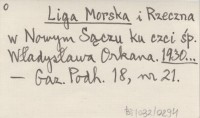 Liga Morska i Rzeczna
w Nowym Sączu ku czci śp.
Władysława Orkana. 1930...
— Gaz. Podh. 18, nr 21.